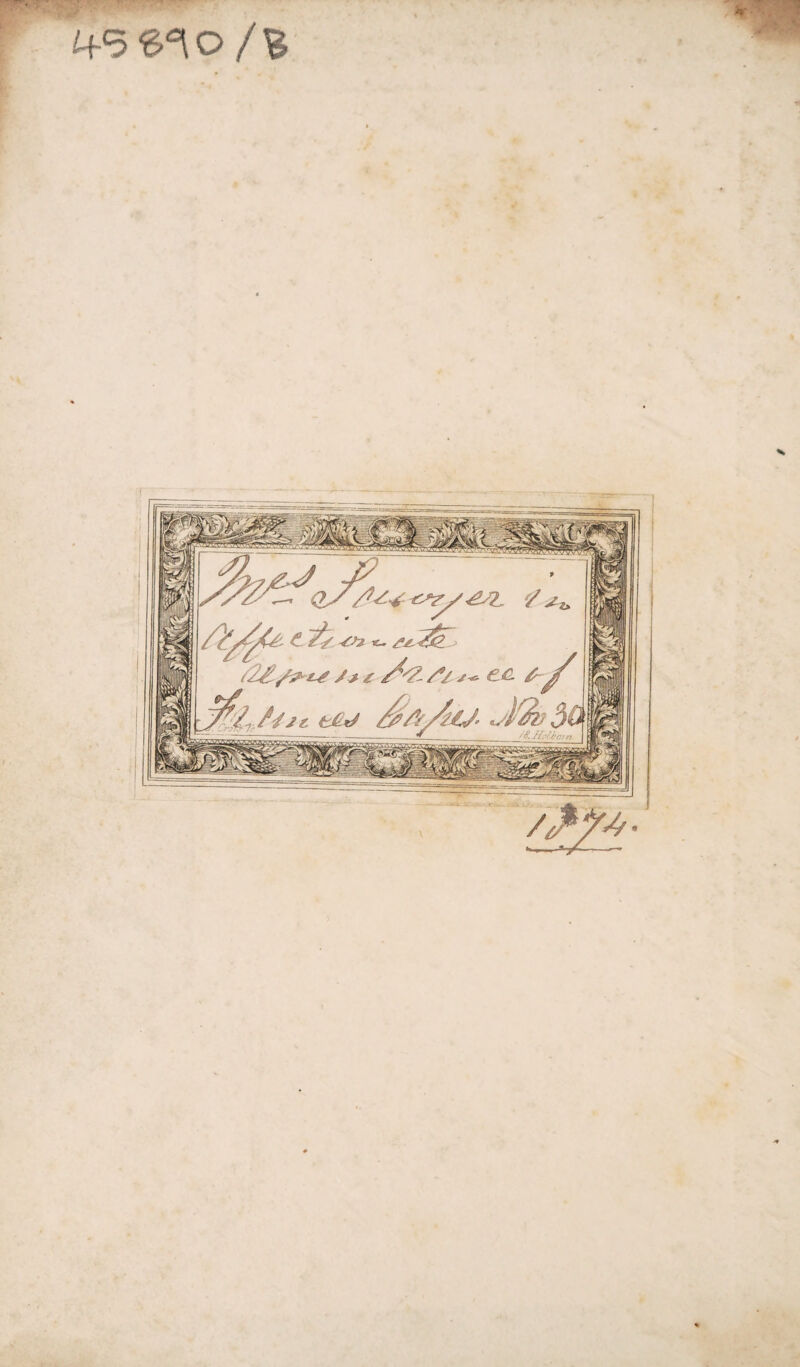 45890/B
Mrs Sawyer in
affectionate
remembrance of
Frances Nov 30
18, Holborn
1874.